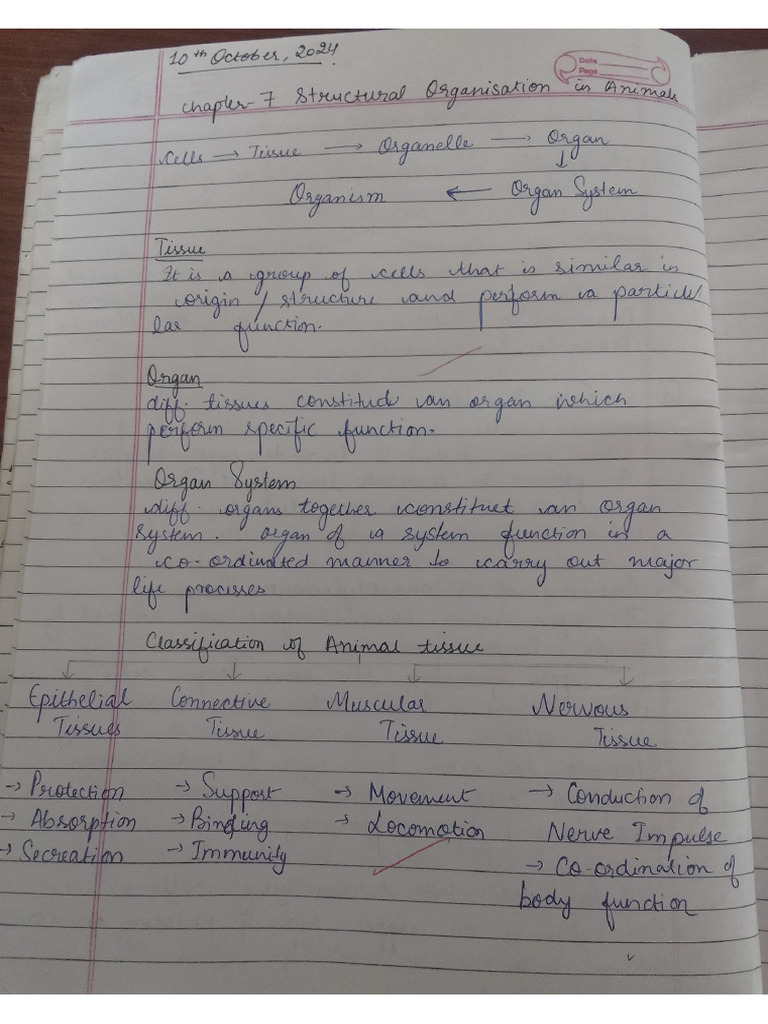 10th October, 2024.
Date
Page
Chapter-7 Structural Organisation in Animals
Cells → Tissue → Organelle → Organ
↓
Organism ← Organ System
Tissue
It is a group of cells that is similar in
origin / structure and perform a particu
lar function.
Organ
diff. tissues constitud an organ which
perform specific function.
Organ System
diff. organs together constituet an organ
system. organ of a system function in a
co-ordinated manner to carry out major
life processes
Classification of Animal tissue
Epithelial Connective Muscular Nervous
Tissues Tissue Tissue Tissue
→ Protection → Support → Movement → Conduction of
→ Absorption → Binding → Locomotion Nerve Impulse
→ Secreation → Immunity → Co-ordination of
body function